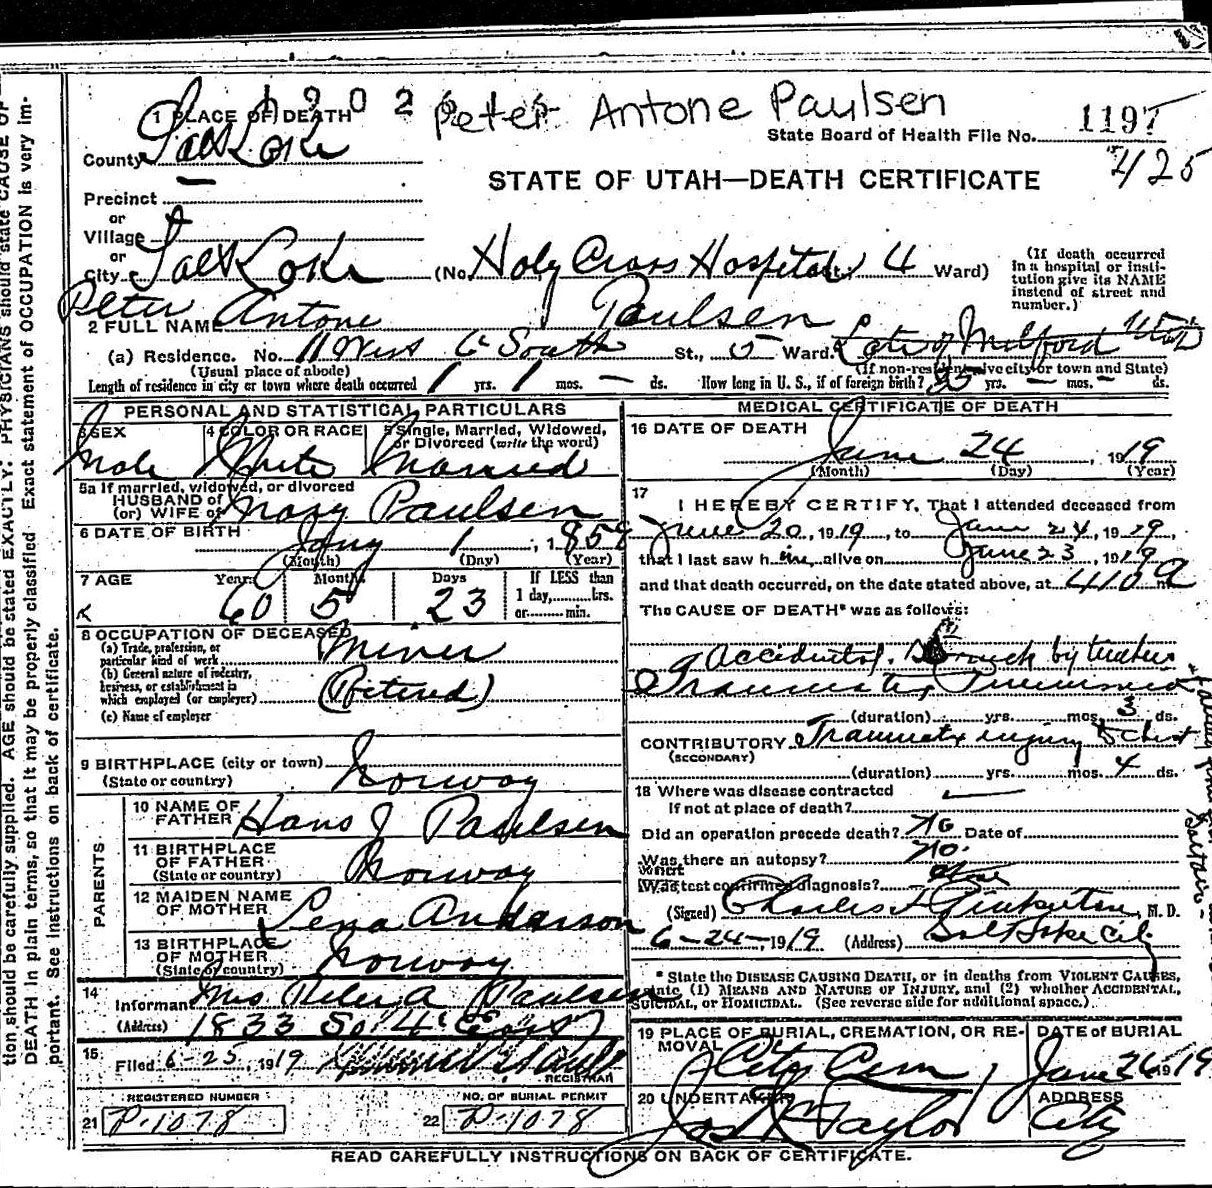 1 PLACE OF DEATH
1 2 0 2 Peter Antone Paulsen
State Board of Health File No. 1197
425
County Salt Lake
STATE OF UTAH—DEATH CERTIFICATE
Precinct
or
Village
or
City Salt Lake (No. Holy Cross Hospital St.; 4 Ward)
(If death occurred in a hospital or insti-
tution give its NAME
instead of street and
number.)
2 FULL NAME Peter Antone Paulsen
(a) Residence. No. 11 West 6 South St., 5 Ward. Late of Milford Utah
(Usual place of abode) (If non-resident give city or town and State)
Length of residence in city or town where death occurred 1 yrs. 1 mos. — ds. How long in U. S., if of foreign birth? 35 yrs. — mos. — ds.
PERSONAL AND STATISTICAL PARTICULARS
3 SEX
Male
4 COLOR OR RACE
White
5 Single, Married, Widowed,
or Divorced (write the word)
Married
5a If married, widowed, or divorced
HUSBAND of
(or) WIFE of Mary Paulsen
6 DATE OF BIRTH Jany 1, 1859
(Month) (Day) (Year)
7 AGE Years Months Days If LESS than
60 5 23 1 day,......hrs.
or........min.
8 OCCUPATION OF DECEASED
(a) Trade, profession, or
particular kind of work Miner
(b) General nature of industry,
business, or establishment in
which employed (or employer) (Retired)
(c) Name of employer
9 BIRTHPLACE (city or town)
(State or country) Norway
PARENTS
10 NAME OF
FATHER Hans J Paulsen
11 BIRTHPLACE
OF FATHER
(State or country) Norway
12 MAIDEN NAME
OF MOTHER Lena Anderson
13 BIRTHPLACE
OF MOTHER
(State or country) Norway
14
Informant Mrs Peter A Paulsen
(Address) 1833 So. 4 East
15
Filed 6-25, 1919
REGISTRAR
REGISTERED NUMBER NO. OF BURIAL PERMIT
21 P-1078 22 P-1078
MEDICAL CERTIFICATE OF DEATH
16 DATE OF DEATH
June 24, 1919
(Month) (Day) (Year)
17
I HEREBY CERTIFY, That I attended deceased from
June 20, 1919, to June 24, 1919,
that I last saw him alive on June 23, 1919,
and that death occurred, on the date stated above, at 410 a m.
The CAUSE OF DEATH* was as follows:
Accidental. Struck by timber
Traumatic Pneumonia
(duration) yrs. mos. 3 ds.
CONTRIBUTORY Traumatic injury to chest
(SECONDARY)
(duration) yrs. mos. 4 ds.
18 Where was disease contracted
if not at place of death?
Did an operation precede death? No Date of
Was there an autopsy? No.
What
Was test confirmed diagnosis?
(Signed) Charles F Pinkerton, M. D.
6-24-, 1919 (Address) Salt Lake City
* State the DISEASE CAUSING DEATH, or in deaths from VIOLENT CAUSES,
state (1) MEANS AND NATURE OF INJURY, and (2) whether ACCIDENTAL,
SUICIDAL, or HOMICIDAL. (See reverse side for additional space.)
19 PLACE OF BURIAL, CREMATION, OR RE-
MOVAL
City Cem
DATE of BURIAL
June 26 1919
20 UNDERTAKER
Jos Wm Taylor
ADDRESS
City
READ CAREFULLY INSTRUCTIONS ON BACK OF CERTIFICATE.
tion should be carefully supplied. AGE should be stated EXACTLY. PHYSICIANS should state CAUSE OF
DEATH in plain terms, so that it may be properly classified. Exact statement of OCCUPATION is very im-
portant. See instructions on back of certificate.